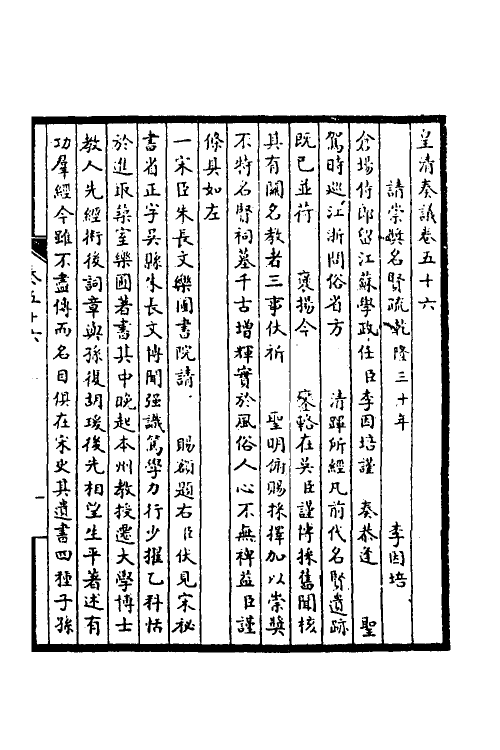 皇清奏議卷五十六
請崇奬名賢疏乾隆三十年 李因培
倉場侍郎留江蘇學政任臣李因培謹 奏恭逢 聖
駕時巡江浙問俗省方 清蹕所經凡前代名賢遺跡
既已並荷 褒揚今 鑾輅在吳臣謹博採舊聞核
其有關名教者三事伏祈 聖明俯賜採擇加以崇奬
不特名賢祠墓千古增輝實於風俗人心不無裨益臣謹
條具如左
一宋臣朱長文樂圃書院請 賜額題右臣伏見宋秘
書省正字吳縣朱長文博聞强識篤學力行少擢乙科恬
於進取築室樂圃著書其中晚起本州教授遷太學博士
教人先經術後詞章與孫復胡瑗後先相望生平著述有
功羣經今雖不盡傳而名目俱在宋史其遺書四種子孫
卷五十六
一